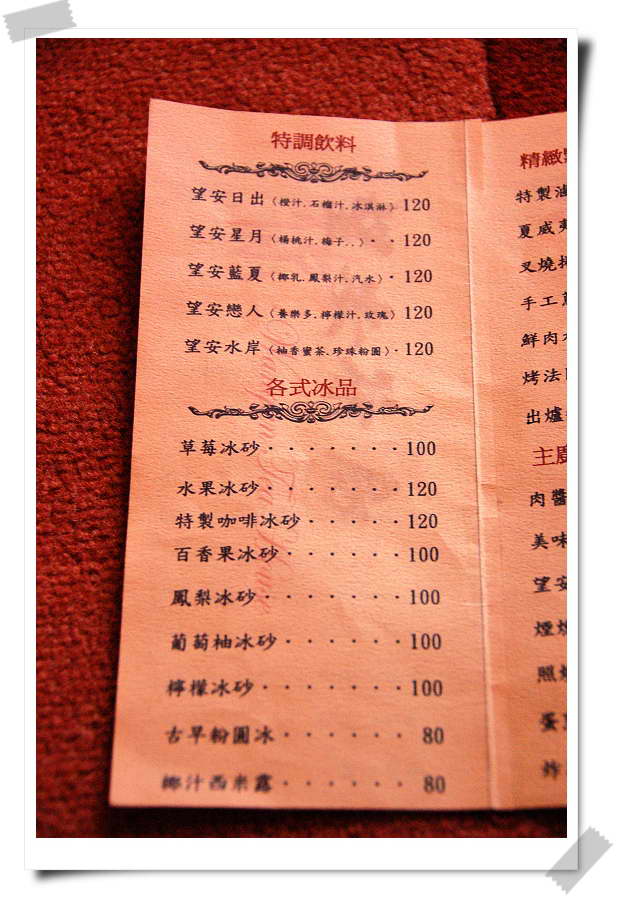 特調飲料
望安日出(橙汁.石榴汁.冰淇淋) 120
望安星月(楊桃汁.梅子..)··120
望安藍夏(椰乳.鳳梨汁.汽水)·120
望安戀人(養樂多.檸檬汁.玫瑰) 120
望安水岸(柚香蜜茶.珍珠粉圓)·120
各式冰品
草莓冰砂·······100
水果冰砂·······120
特製咖啡冰砂·····120
百香果冰砂······100
鳳梨冰砂·······100
葡萄柚冰砂······100
檸檬冰砂·······100
古早粉圓冰······80
椰汁西米露······80
精緻
特製
夏威
叉燒
手工
鮮肉
烤法
出爐
主廚
肉醬
美味
望安
煙
照
蛋
炸